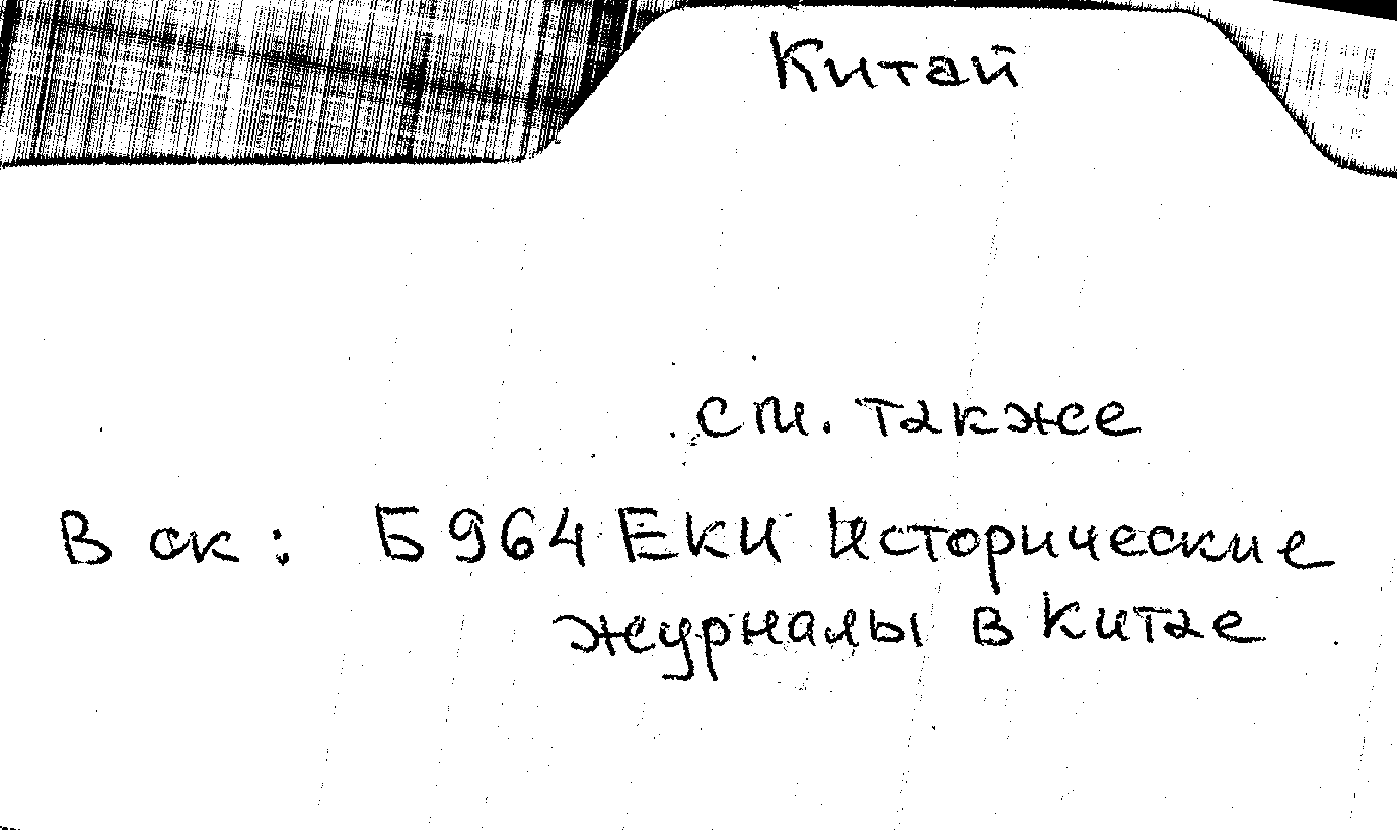 Китай
см. также
В ск: Б964 ЕКИ Исторические
журналы в Китае